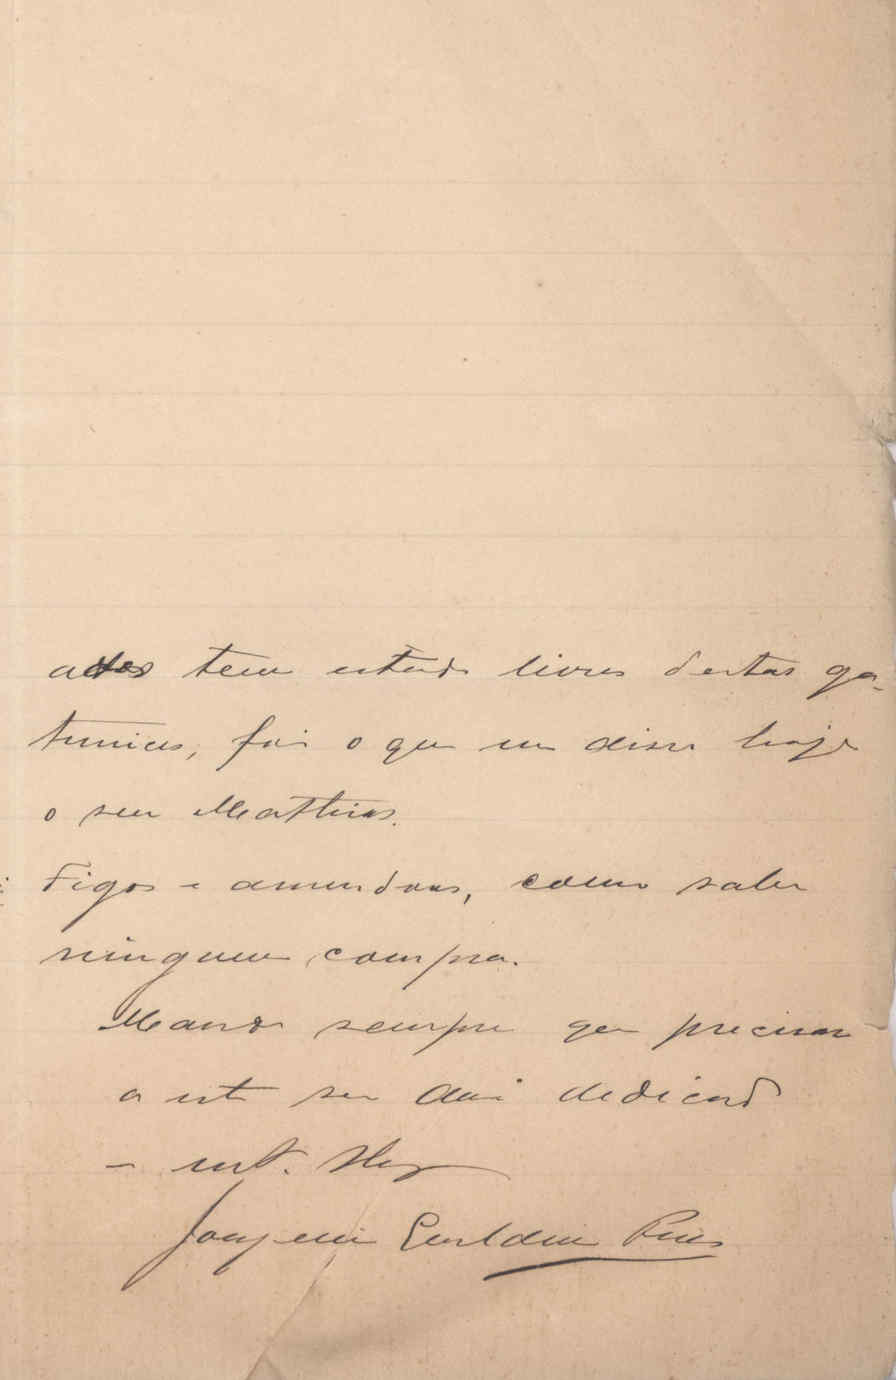 tem estado livres destas ga-
tunices, foi o que me disse hoje
o seu Mathias.
Figos e amendoas, como sabe
ninguem compra.
Mande sempre que precisar
a este seu am.º dedicado
e mt.
Joaquim Gualdino Pires